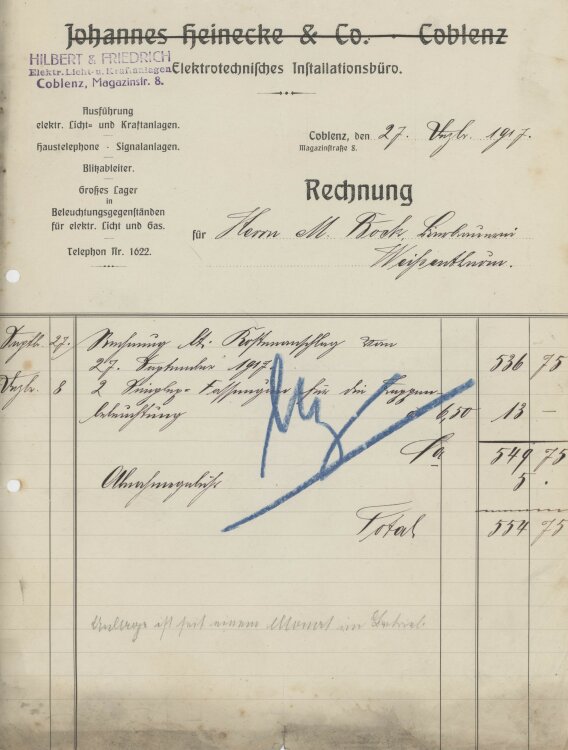 Johannes Heinecke & Co. · Coblenz
HILBERT & FRIEDRICH
Elektr. Licht- u. Kraftanlagen
Coblenz, Magazinstr. 8.
Elektrotechnisches Installationsbüro.
Ausführung
elektr. Licht- und Kraftanlagen.
Haustelephone · Signalanlagen.
Blitzableiter.
Großes Lager
in
Beleuchtungsgegenständen
für elektr. Licht und Gas.
Telephon Nr. 1622.
Coblenz, den 27. Dezbr. 1917.
Magazinstraße 8.
Rechnung
für Herrn M. Bock, Bierbrauerei
Weißenthurm.
Septb. 27. Rechnung lt. Kostenanschlag vom
27. September 1917 536 75
Dezbr. 8 2 Fassungen für die Treppen-
beleuchtung a 6,50 13 —
Sa 549 75
Abnahmegebühr 5 .
Total 554 75
Anlage ist seit einem Monat im Betrieb.